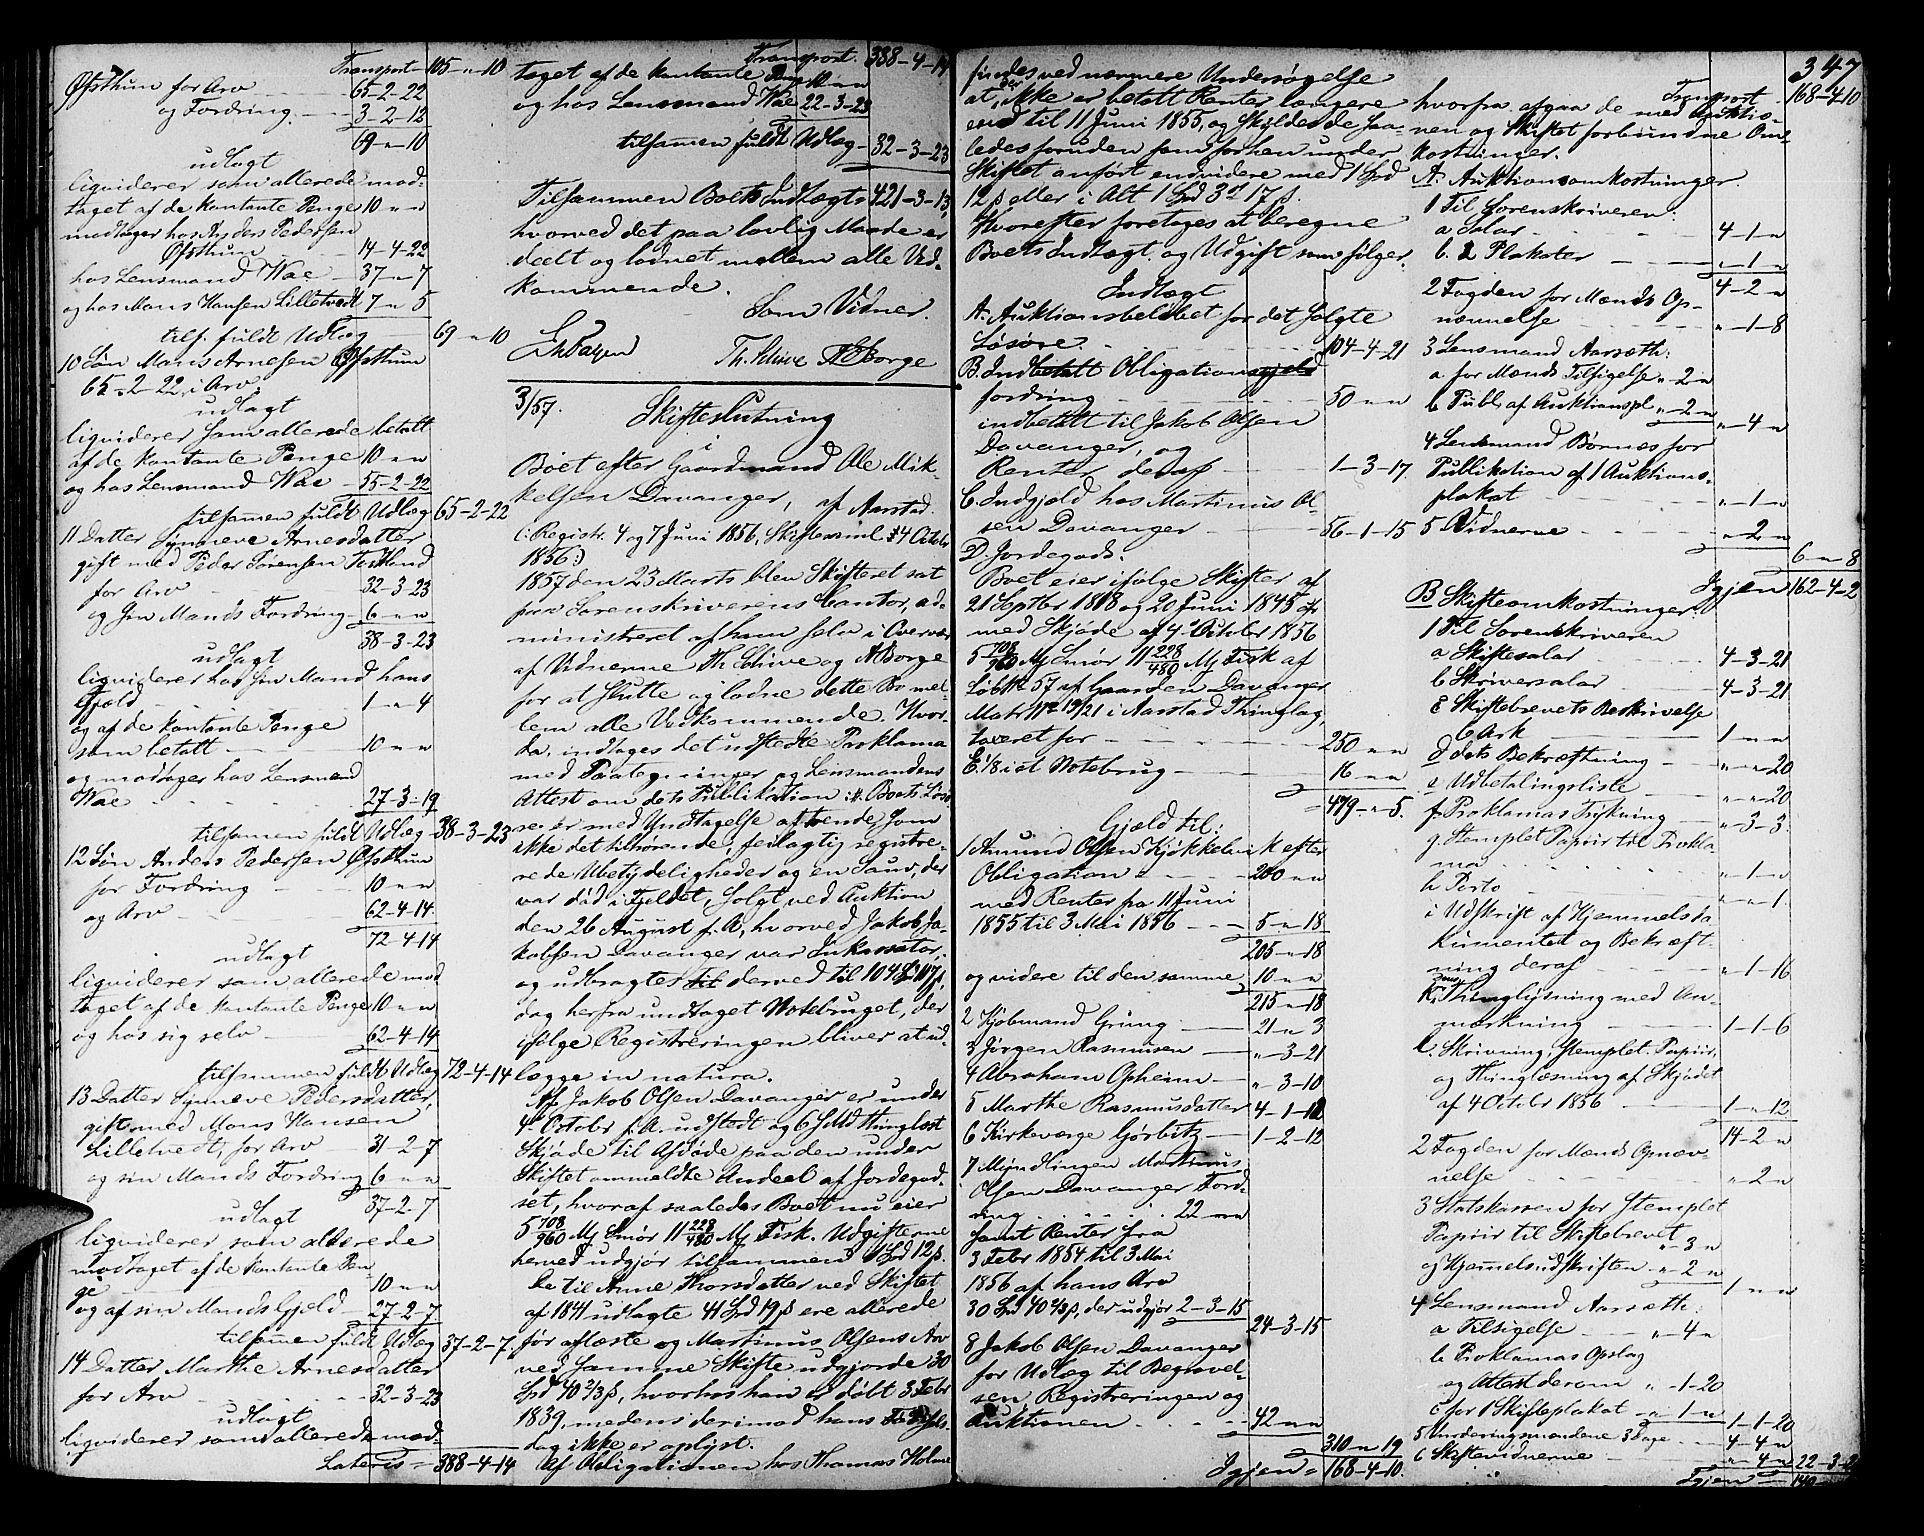 Transport – 105 – " – 10
Øfsthun for Arv 65-2-22
og Fordring 3-2-12
69 " 10
udlagt
liqviderer som allerede mod-
taget af de kontante Penge 10 " "
modtager hos Anders Pedersen
Øfsthun 14-4-22
hos Lensmand Wae 37 " 7
og hos Mons Hansen Lilletvedt 7 " 5
tils. fuldt Udlæg 69 " 10
10 Søn Mons Arnesen Øfsthun
65-2-22 i Arv
udlagt
liqviderer som allerede betalt
af de kontante Penge 10 " "
og hos Lensmand Wae 55-2-22
tilsammen fuldt Udlæg 65-2-22
11 Datter Synneve Arnesdatter
gift med Peder Sørensen
for Arv 32-3-23
og sin Mands Fordring 6 " "
38-3-23
udlagt
liqviderer hos sin Mand hans
Gjæld 1 " 4
og af de kontante Penge
som betalt 10 " "
og modtager hos Lensmand
Wae 27-3-19
tilsamen fuldt Udlæg 38-3-23
12 Søn Anders Pedersen Øfsthun
for Fordring 10 " "
og Arv 62-4-14
72-4-14
udlagt
liqviderer som allerede mod
taget af de kontante Penge 10 " "
og hos sig selv 62-4-14
tilsammen fuldt Udlæg 72-4-14
13 Datter Synneve Pedersdatter,
gift med Mons Hansen
Lilletvedt, for Arv 31-2-7
og sin Mands Fordring 6 " "
37-2-7
udlagt
liqviderer som allerede
modtaget af de kontante Pen-
ge 10 " "
og af sin Mands Gjeld 27-2-7
tilsamen fuldt Udlæg 37-2-7
14 Datter Marthe Arnesdatter
for Arv 32-3-23
udlagt
liqviderer som allerede mod-
Lateris = 388-4-14
Transport. 388-4-14
taget af de kontante Penge 10 " "
og hos Lensmand Wae 22-3-23
tilsamen fuldt Udlæg 32-3-23
Tilsammen Boets Indtægt 421-3-13,
hvorved det paa lovlig Maade er
deelt og lodnet mellem alle Ved-
kommende.
Som Vidner.
Th. Schive Borge
3/57. Skifteslutning
i
Boet efter Gaardmand Ole Mik-
kelsen Davanger, af Aarstad.
(: Registr. 4 og 7 Juni 1856, Skiftesaml. 4 October
1856:)
1857 den 23 Marts blev Skifteret sat
paa Sorenskriverens Contor, ad-
ministreret af ham selv i Overvær
af Vidnerne Th. Schive og Borge
for at slutte og lodne dette Bo mel-
lem alle Vedkommende. Hvor-
da, indtages det udstedte Proklama
med Paategninger og Lensmandens
Attest om dets Publikation. Boets Løsø
re er med Undtagelse af som
ikke det tilhørende, feilagtig registre-
rede Ubetydeligheder og en Sauv, der
var död i Fjeldet, solgt ved Auktion
den 26 August f. A, hvorved Jakob Ja-
kobsen Davanger var Inkassator,
og udbragtes derved til 104
dog herfra undtaget Notebruget, der
ifølge Registreringen bliver at ud-
lægge in natura.
Af Jakob Olsen Davanger er under
4 October f. A. udstedt og 6 thinglæst
Skjøde til Afdøde paa den under
Skiftet ommeldte Andeel af Jordegod-
set, hvoraf saaledes Boet nu eier
5 708/960 Mj Smør 11 228/480 Mj Fisk. Udgifterne
herved udgjør tilsammen 1 Spd 12 s.
De til Anne Thorsdatter ved Skiftet
af 1841 udlagte 41 Spd 19 s ere allerede
før aflæste og Martinus Olsens Arv
ved samme Skifte udgjorde 30
Spd 40 2/3 s, hvorhos han er døbt 3 Febr
1839, medens derimod hans Fødsels-
dag ikke er oplyst.
Af Obligationen hos Thomas Holme
findes ved nærmere Undersøgelse
at der ikke er betalt Renter længere
end til 11 Juni 1855, og skyldes de saa-
ledes foruden som forhen under
Skiftet anført endvidere med 1 Spd
12 s eller i Alt 1 Spd 3 17 s.
Hvorefter foretoges at beregne
Boets Indtægt og Udgift som følger.
Indtægt
A. Auktionsbeløbet for det solgte
Løsøre. 104-4-21
B. Indbetalt Obligations
fordring 50 " "
indbetalt til Jakob Olsen
Davanger, og
Renter deraf 1-3-17
C. Indgjæld hos Martinus Ol-
sen Davanger 56-1-15
D. Jordegods.
Boet eier ifølge Skifter af
21 Septbr 1818 og 20 Juni 1845
med Skjøde af 4 October 1856
5 708/960 Mj Smør 11 228/480 Mj Fisk af
LøbNo 57 af Gaarden Davanger
Matr No 19/21 i Aarstad Thinglag,
taxeret for 250 " "
E. 1/8 i et Notebrug 16 " "
= 479 – " 5.
Gjæld til:
1 Amund Olsen Kjøkkelvik efter
Obligation 200 " "
med Renter fra 11 Juni
1855 til 3 Mai 1856 5 " 18
205 " 18
og videre til den samme 10 " "
215 " 18
2 Kjøbmand Grung 21 " 3
3 Jørgen Rasmussen " 3-21
4 Abraham Opheim " 3-10
5 Marthe Rasmusdatter 4-1-12
6 Kirkeværge Görbitz 1-2-12
7 Myndlingen Martinus
Olsen Davanger Ford-
ring 22 " "
samt Renter fra
3 Febr 1854 til 3 Mai
1856 af hans Arv
30 Spd 40 2/3 s, der udgjør 2-3-15
24-3-15
8 Jakob Olsen Davanger
for Udlæg til Begravel-
sen, Registreringen og
Auktionen 42 " "
310 " 19
Igjen = 168-4-10.
347
Transport 168-4-10
hvorfra afgaa de med Auktio-
nen og Skiftet forbundne Om-
kostninger.
A. Auktionsomkostninger.
1 Til Sorenskriveren:
a Salær 4-1 "
b. 2 Plakater " 1 "
4-2 "
2 Fogden for Mænds Op-
nævnelse " 1-8
3 Lensmand Aarsæth:
a. for Mænds Tilsigelse " 2 "
b Publ. af Auktionspl " 2 "
" 4 "
4 Lensmand Børnæs for
Publikation af 1 Auktions-
plakat " 1 "
5 Vidnerne " 2 "
6 " 8
Igjen 162-4-2
B Skifteomkostninger.
1 Til Sorenskriveren
a Skiftesalær 4-3-21
b Skriversalær 4-3-21
c Skiftebrevets Beskrivelse
6 Ark 1 " "
d dets Bekræftning " " 20
e Udbetalingsliste " " 20
f. Proklamas Trykning " 3-3
g. Stemplet Papiir til Prokla-
ma " 1 "
h Porto " " 1
i Udskrift af Hjemmelsdo
kumentet og Bekræft-
ning deraf " 1-16
k. Thinglysning med An-
mærkning 1-1-6
l. Skrivning, stemplet Papiir,
og Thinglæsning af Skjødet
af 4 Octobr 1856 1 " 12
14-2 "
2 Fogden for Mænds Opnæv-
nelse " 2 "
3 Statskassen for stemplet
Papiir til Skiftebrevet " 3 "
og Hjemelsudskriften " 2 "
1 " "
4 Lensmand Aarsæth:
a Tilsigelse " 4 "
b. Proklamas Opslag
og Attest derom " 1-20
c for 1 Skifteplakat " 1 "
1-1-20
5 Vurderingsmændene 3 Dage 4-4 "
6 Skiftevidnerne " 4 "
22-3-
Igjen